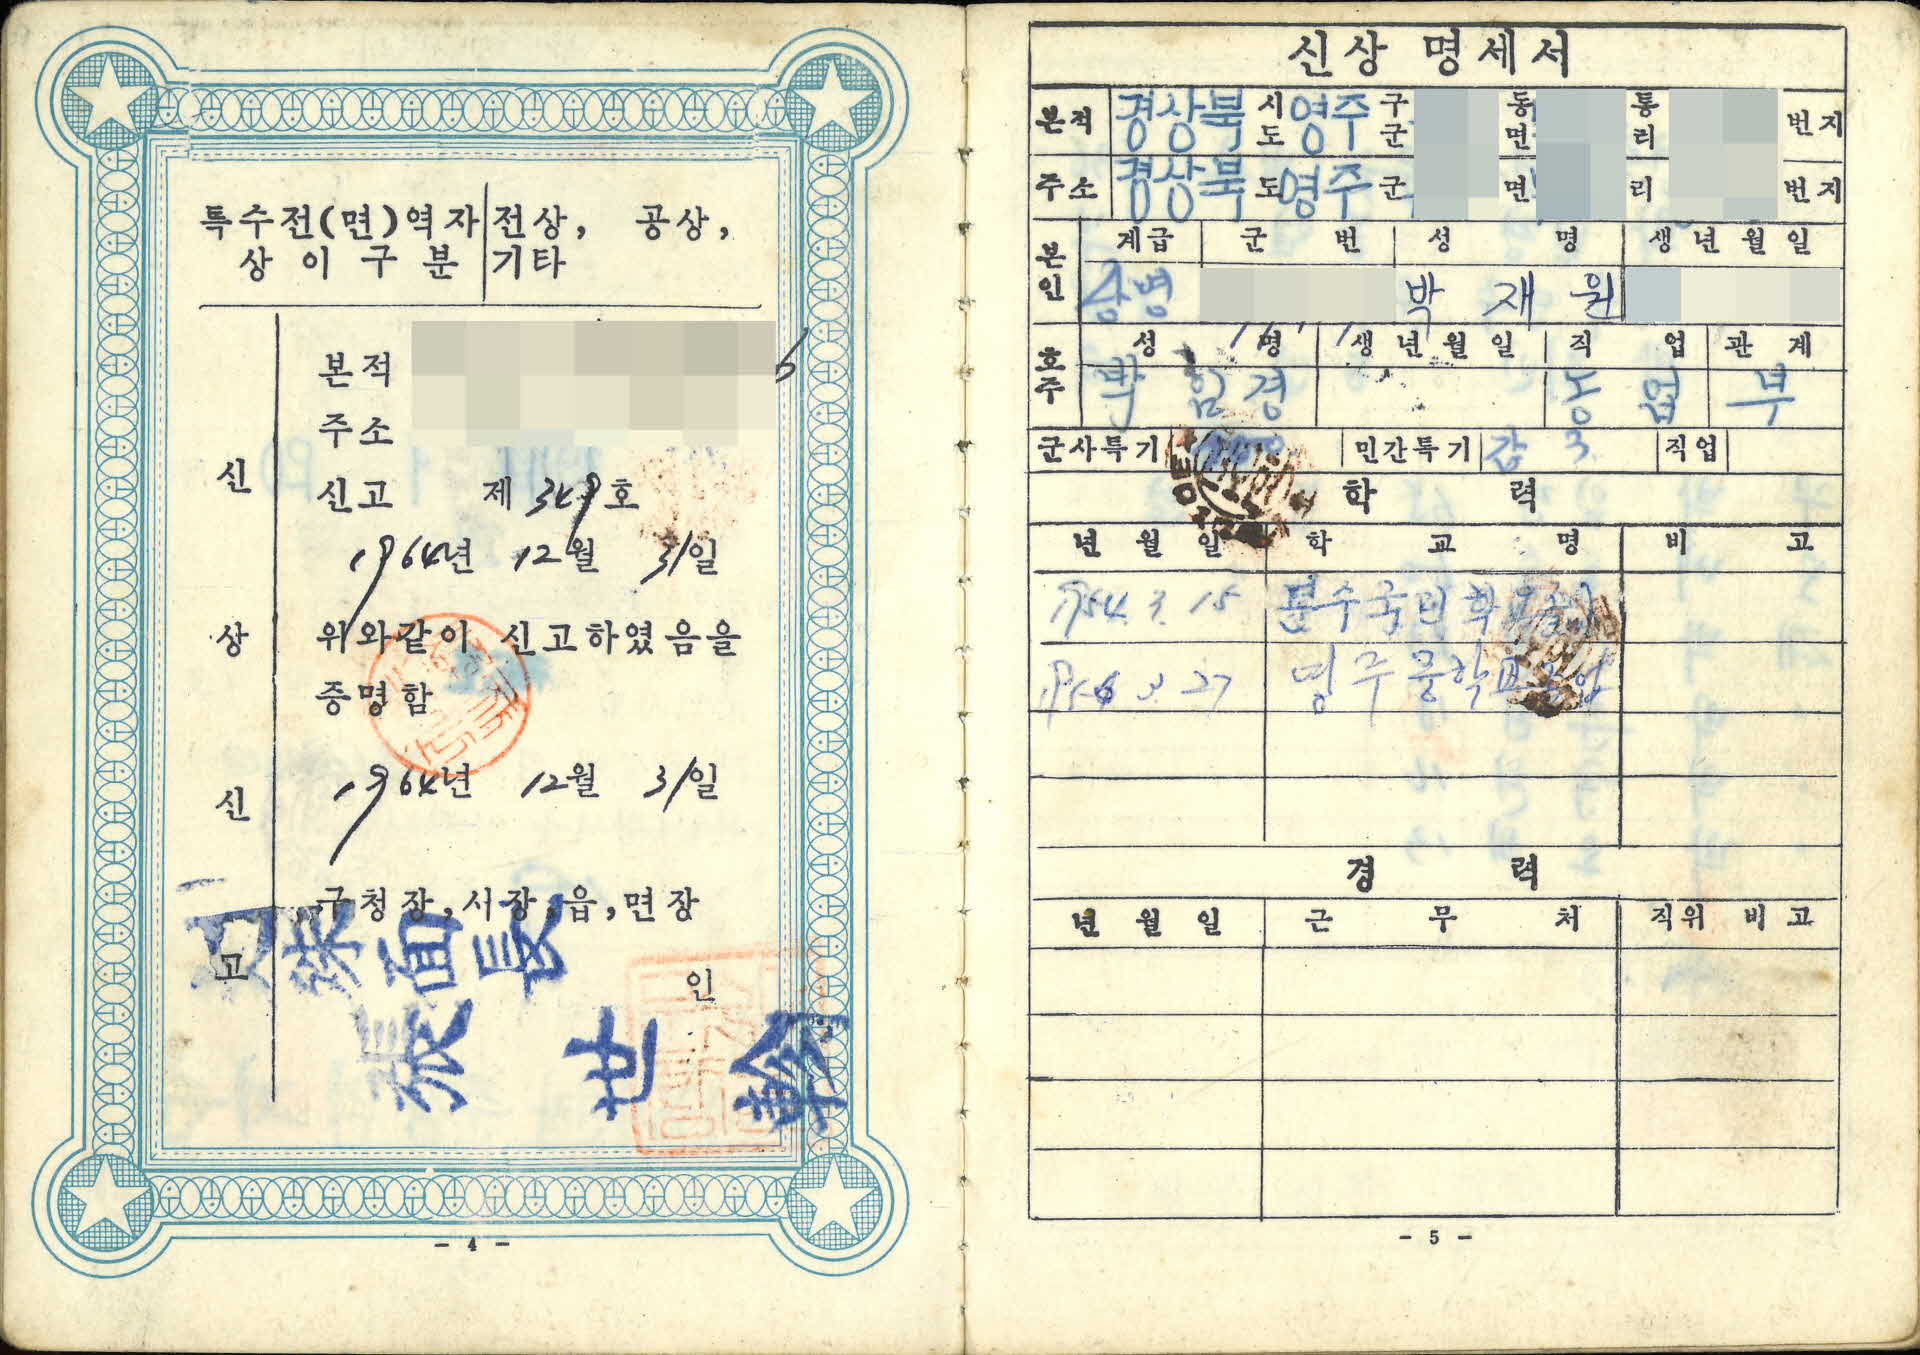 특수전(면)역자 전상, 공상,
상이구분 기타
신상신고
본적
주소
신고 제 349호
1964년 12월 31일
위와같이 신고하였음을
증명함
1964년 12월 31일
구청장, 서장, 읍, 면장
面長
인
張世翰
- 4 -
신상 명세서
본적 경상북 시도 영주 구군 동면 통리 번지
주소 경상북 도 영주 군 면 리 번지
본인 계급 군번 성명 생년월일
상병 박재원
호주 성명 생년월일 직업 관계
박임경 농업 부
군사특기 민간특기 감 3 직업
학력
년월일 학교명 비고
1954. 3. 15 문수국민학교
1956 3 27 영주중학교졸업
경력
년월일 근무처 직위 비고
- 5 -